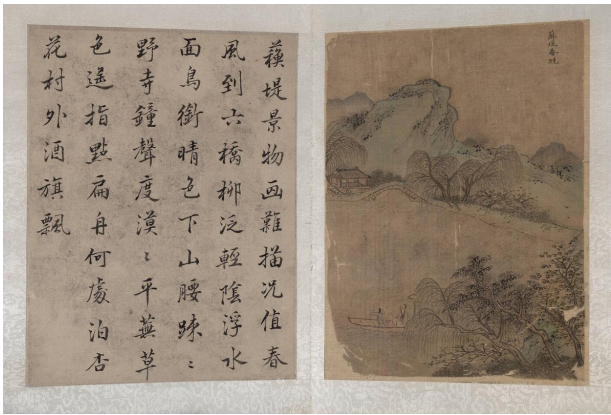 蘇堤春曉
蘓堤景物画難描况值春
風到六橋柳泛輕陰浮水
面鳥銜晴色下山腰踈〻
野寺鐘聲度漠〻平蕪草
色遥指點扁舟何處泊杏
花村外酒旗飄